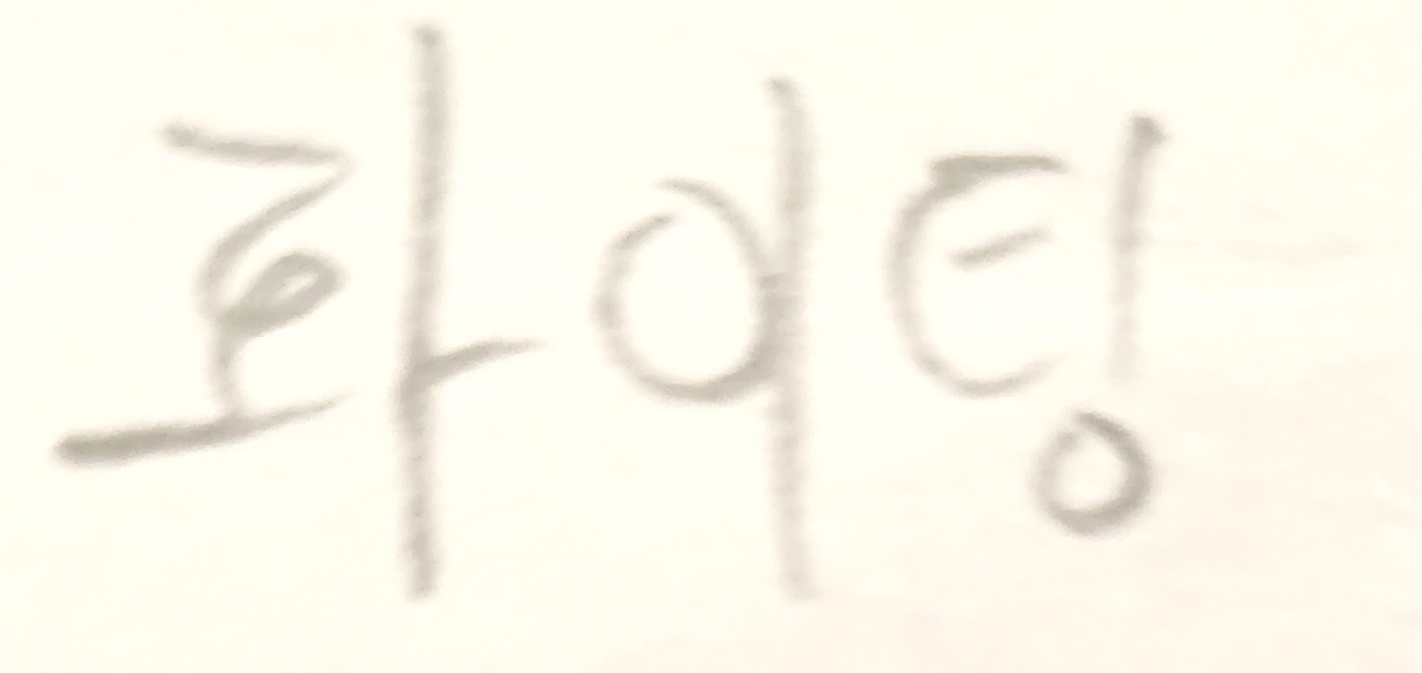 화이팅